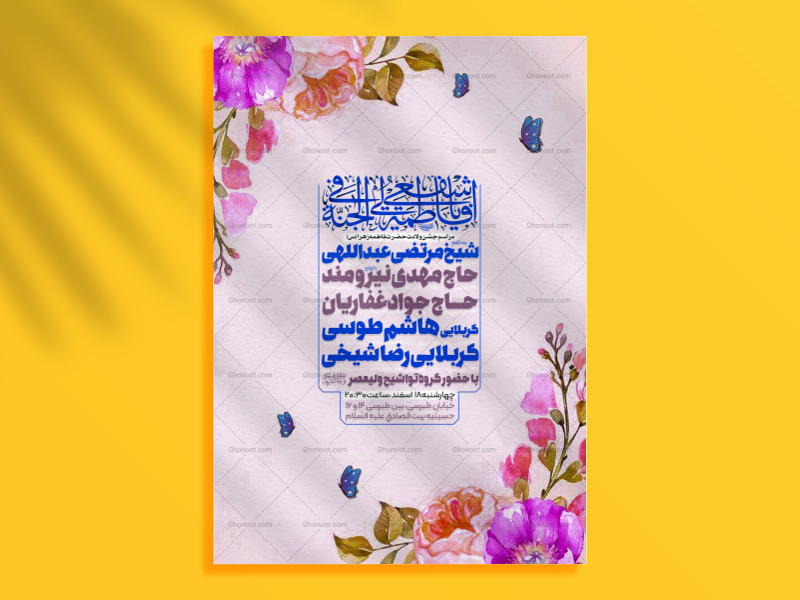 یا فاطمة اشفعی لی فی الجنة
مراسم جشن ولادت حضرت فاطمه زهرا (س)
شیخ مرتضی عبداللهی
حاج مهدی نیرومند
حاج جواد غفاریان
کربلایی هاشم طوسی
کربلایی رضا شیخی
با حضور گروه تواشیح ولیعصر
چهارشنبه ۱۸ اسفند، ساعت ۲۰:۳۰
خیابان طبرسی، بین طبرسی ۱۴ و ۱۶
حسینیه بیت الصادق علیه السلام
Ghonoot.com